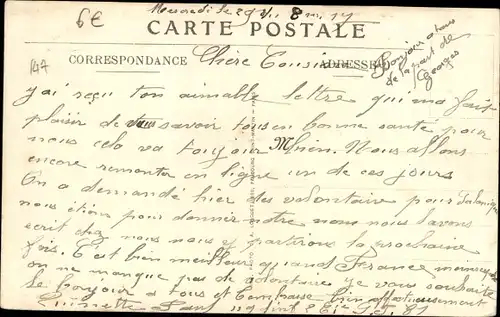 6€
Mercredi le 29
CARTE POSTALE
147
CORRESPONDANCE
ADRESSE
Chère Cousine
Bonjour a tous
de la part de
Georges
j'ai reçu ton aimable lettre qui ma fait
plaisir de vous savoir tous en bonne santé pour
nous cela va toujour bien. Nous allons
encore remonter en ligne un de ces jours
On a demandé hier des volontaire pour Salonique
nous étion pour donnir notre nom nous lavons
ecrit chez nous nous y partirons la prochaine
fois. C'est bien meilleur quand France
on ne manque pas de volontaire je vous souhaite
le bonjour a tous et t'embrasse bien affectueusement